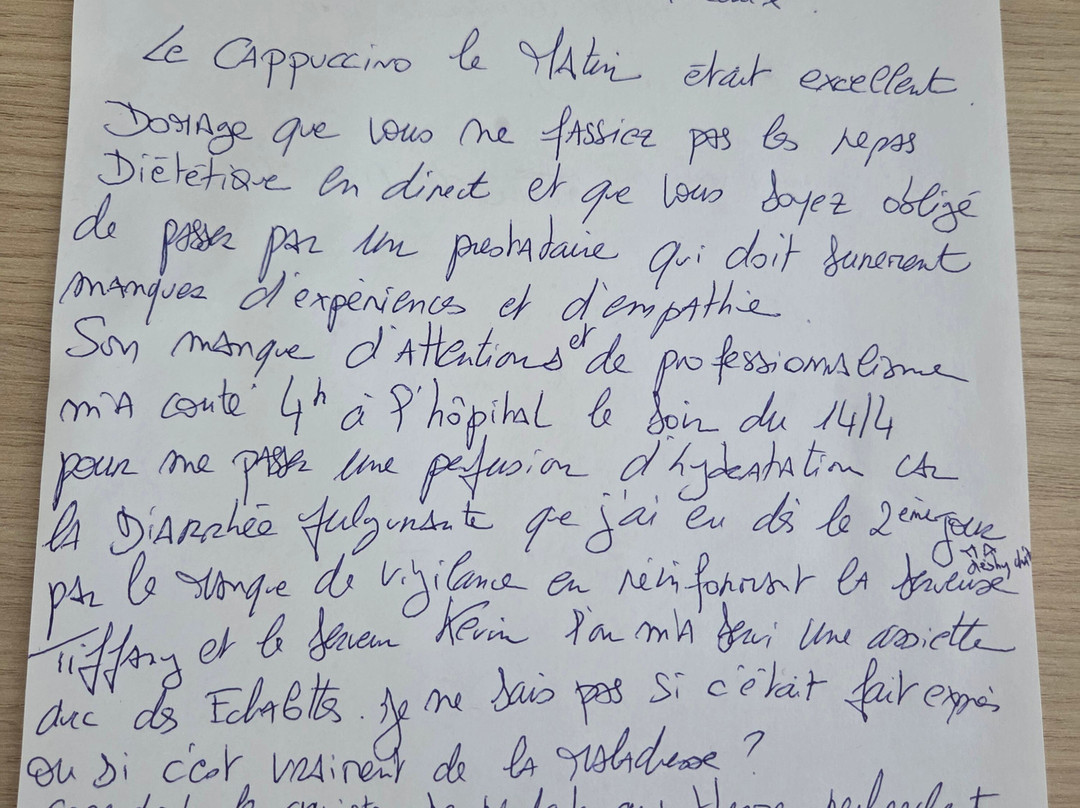 Le CAppuccino le MAtin était excellent.
DomAge que vous ne fAssiez pas les repas
Diététique en direct et que vous soyez obligé
de passer par un prestataire qui doit surement
manquer d'expériences et d'empAthie
Son manque d'Attentions et de professionnalisme
m'A couté 4h à l'hôpital le soir du 14/4
pour me passer une perfusion d'hydratAtion car
lA DiArrhée fulgurante que j'ai eu dès le 2ème jour
m'A déshydraté
par le manque de vigilance en réinformant lA serveuse
Tiffany et le serveur Kevin l'on m'A servi une assiette
avec des EchAlottes. Je ne sais pas si c'était fait exprès
ou si c'est vraiment de lA MaladresSe ?